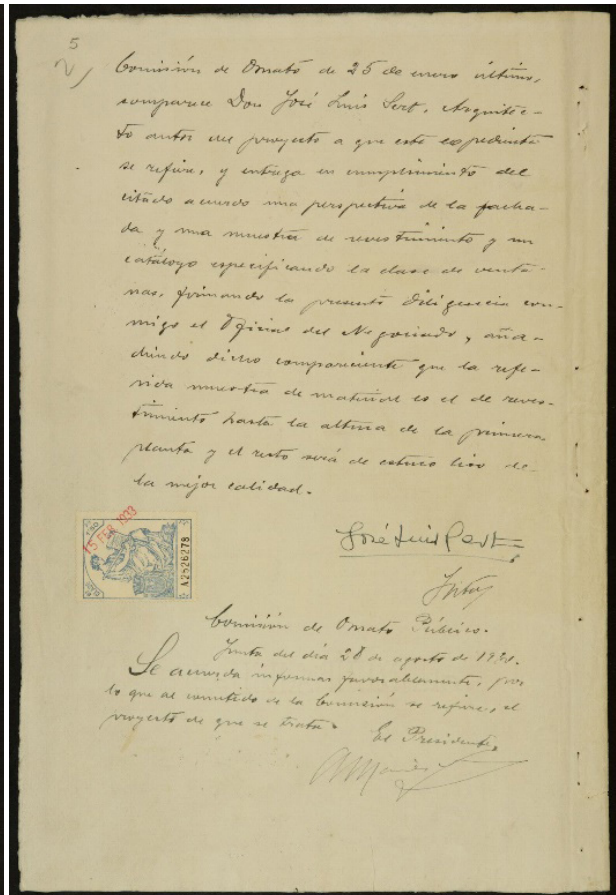 5
Comisión de Ornato de 25 de enero último,
comparece Don José Luis Sert, Arquitec-
to autor del proyecto a que este expediente
se refiere, y entrega en cumplimiento del
citado acuerdo una perspectiva de la facha-
da y una muestra de revestimiento y un
catálogo especificando la clase de venta-
nas, firmando la presente diligencia con-
migo el Oficial del Negociado, aña-
diendo dicho compareciente que la refe-
rida muestra de material es el de reves-
timiento hasta la altura de la primera
planta y el resto será de estuco liso de
la mejor calidad.
15 FEB 1933
A2526278
José Luis Sert
Comisión de Ornato Público.
Junta del día 28 de agosto de
Se acuerda informar favorablemente, por
lo que al cometido de la Comisión se refiere, el
proyecto de que se trata.
El Presidente,